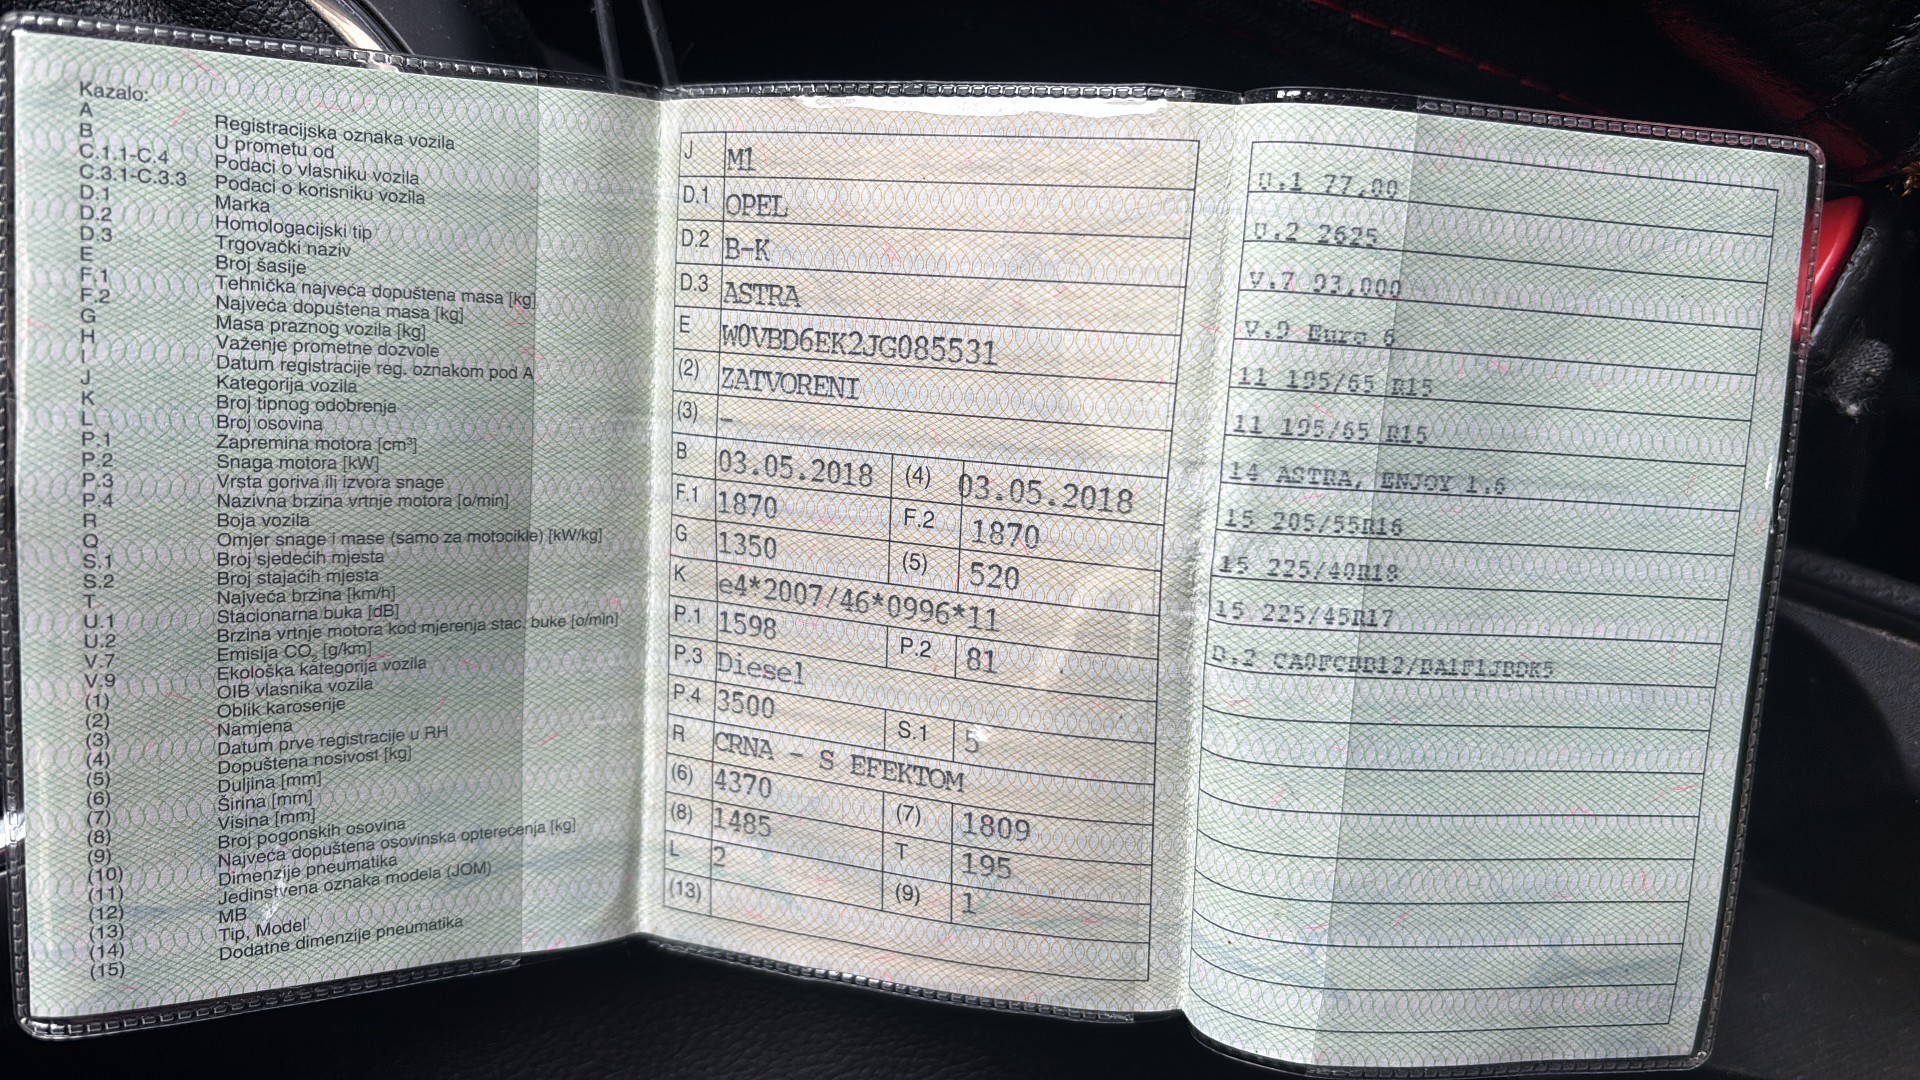 Kazalo:
A Registracijska oznaka vozila
B U prometu od
C.1.1-C.4 Podaci o vlasniku vozila
C.3.1-C.3.3 Podaci o korisniku vozila
D.1 Marka
D.2 Homologacijski tip
D.3 Trgovački naziv
E Broj šasije
F.1 Tehnička najveća dopuštena masa [kg]
F.2 Najveća dopuštena masa [kg]
G Masa praznog vozila [kg]
H Važenje prometne dozvole
I Datum registracije reg. oznakom pod A
J Kategorija vozila
K Broj tipnog odobrenja
L Broj osovina
P.1 Zapremina motora [cm³]
P.2 Snaga motora [kW]
P.3 Vrsta goriva ili izvora snage
P.4 Nazivna brzina vrtnje motora [o/min]
R Boja vozila
Q Omjer snage i mase (samo za motocikle) [kW/kg]
S.1 Broj sjedećih mjesta
S.2 Broj stajaćih mjesta
T Najveća brzina [km/h]
U.1 Stacionarna buka [dB]
U.2 Brzina vrtnje motora kod mjerenja stac. buke [o/min]
V.7 Emisija CO₂ [g/km]
V.9 Ekološka kategorija vozila
(1) OIB vlasnika vozila
(2) Oblik karoserije
(3) Namjena
(4) Datum prve registracije u RH
(5) Dopuštena nosivost [kg]
(6) Duljina [mm]
(7) Širina [mm]
(8) Visina [mm]
(9) Broj pogonskih osovina
(10) Najveća dopuštena osovinska opterećenja [kg]
(11) Dimenzije pneumatika
(12) Jedinstvena oznaka modela (JOM)
(13) MB
(14) Tip, Model
(15) Dodatne dimenzije pneumatika
J M1
D.1 OPEL
D.2 B-K
D.3 ASTRA
E W0VBD6EK2JG085531
(2) ZATVORENI
(3) –
B 03.05.2018 (4) 03.05.2018
F.1 1870 F.2 1870
G 1350 (5) 520
K e4*2007/46*0996*11
P.1 1598 P.2 81
P.3 Diesel
P.4 3500 S.1 5
R CRNA - S EFEKTOM
(6) 4370 (7) 1809
(8) 1485 T 195
L 2 (9) 1
(13)
U.1 77,00
U.2 2625
V.7 93,000
V.9 Euro 6
11 195/65 R15
11 195/65 R15
14 ASTRA, ENJOY 1.6
15 205/55R16
15 225/40R18
15 225/45R17
D.2